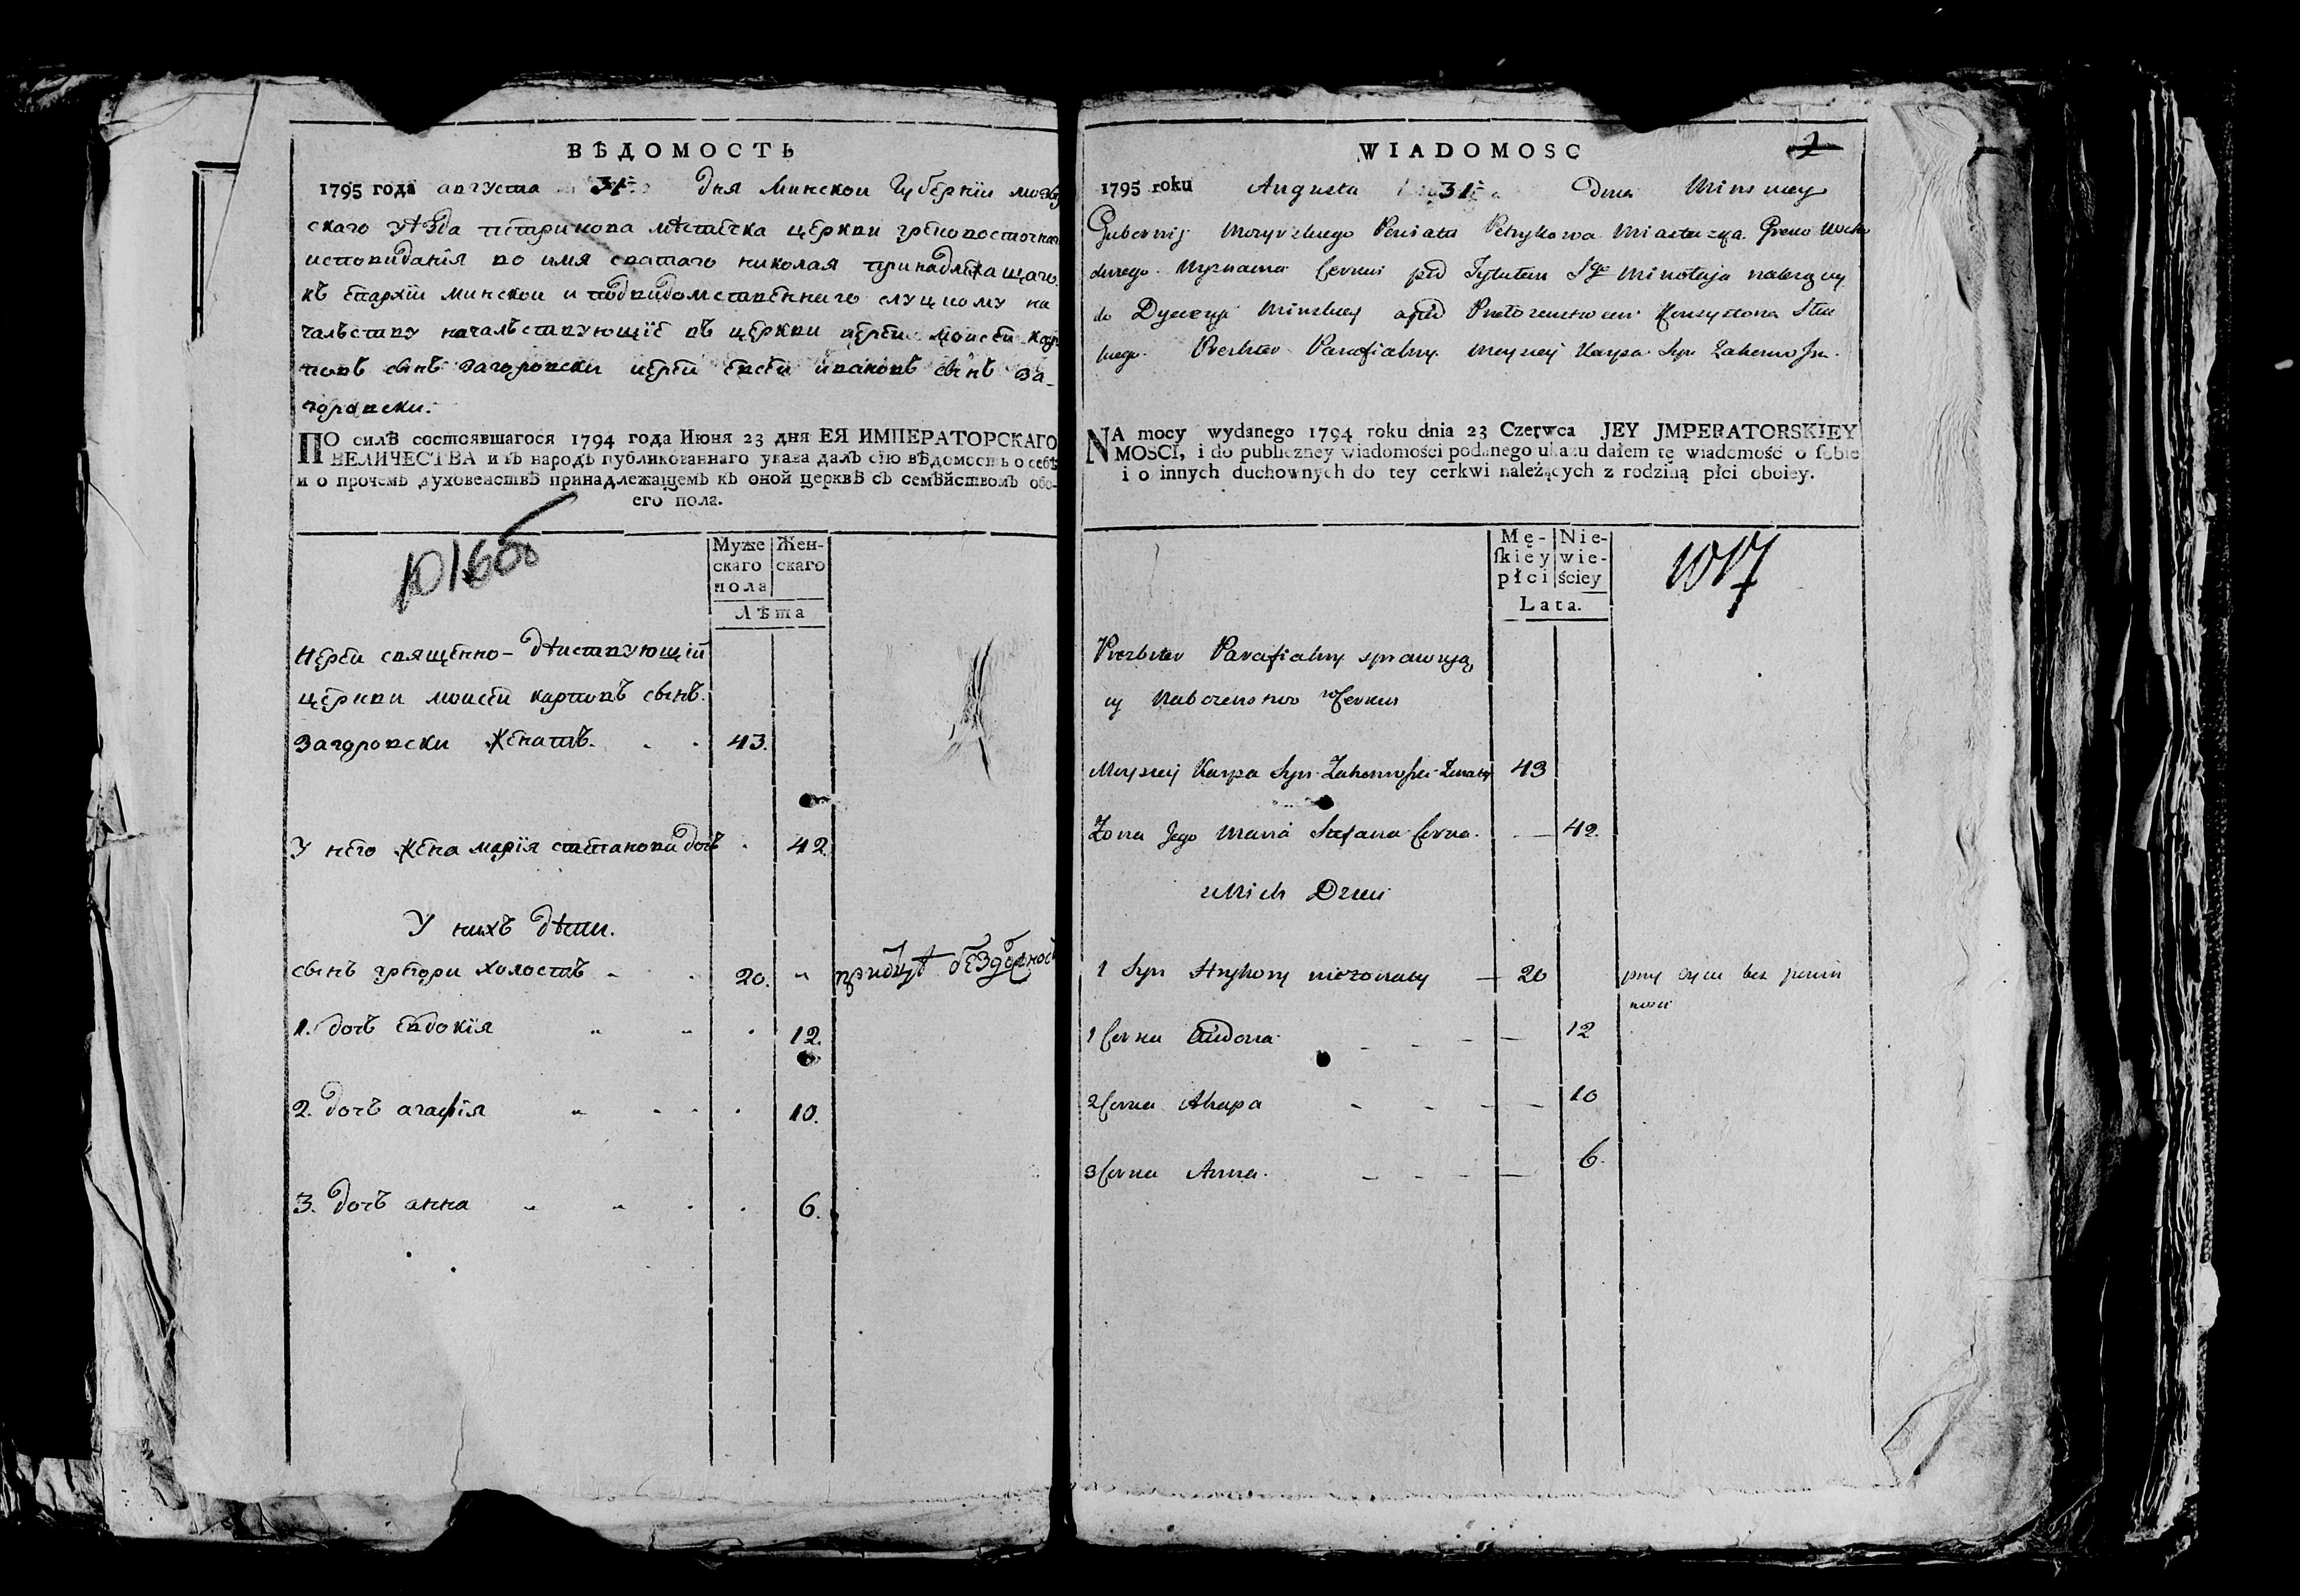 ВѢДОМОСТЬ
1795 года августа 31 дня Минской Губернїи мозы
скаго уѣзда петрикова мѣстечка церкви грековосточнаго
исповиданїя во имя святаго николая принадлѣжащаго
къ епархїи минской и подвидомственнаго слуцкому на
чалъству началъствующїе въ церкви иерей моисей кар
повъ сынъ загоровски иерей евсей ивановъ сынъ за-
горовски.
ПО силѣ состоявшагося 1794 года Июня 23 дня ЕЯ ИМПЕРАТОРСКАГО
ВЕЛИЧЕСТВА и въ народъ публикованнаго указа далъ сїю вѣдомость о себѣ
и о прочемъ духовенствѣ принадлежащемъ къ оной церквѣ съ семѣйствомъ обо-
его пола.
Муже Жен-
скаго скаго
пола
Лѣта
Иерей священно-дѣиствующїй
церкви моисей карповъ сынъ
Загоровски женатъ. 43.
У него жена марїя степанова дочъ 42
У нихъ дѣти.
сынъ григори холостъ 20.
1. дочъ евдокїя 12.
2. дочъ агафїя 10.
3. дочъ анна 6.
WIADOMOSC 2
1795 roku Augusta 31 Dnia Minskey
Gubernij Mozyrskiego Powiatu Petrykowa Miasteczka Greko Wscho
dniego Wyznania Cerkwi pod Tytułem Sgo Mikołaja należący
do Dyecezyi Minskiey
Prezbiter Parafialny Moyzey Karpa Syn
NA mocy wydanego 1794 roku dnia 23 Czerwca JEY JMPERATORSKIEY
MOSCI, i do publiczney wiadomości podanego ukazu dałem tę wiadomość o sobie
i o innych duchownych do tey cerkwi należących z rodziną płci oboiey.
Mę- Nie-
skiey wie-
płci ściey
Lata.
1017
Prezbiter Parafialny sprawują
cy Nabozenstwo w Cerkwi
Moyzey Karpa Syn Zahorowski Zonaty 43
Zona Jego Maria Stefana Corka. 42.
u Nich Dzieci
1 Syn Hryhory niezonaty 20 przy oycu bez powin
nosci
1 Corka Audocia 12
2 Corka Ahapa 10
3 Corka Anna. 6.